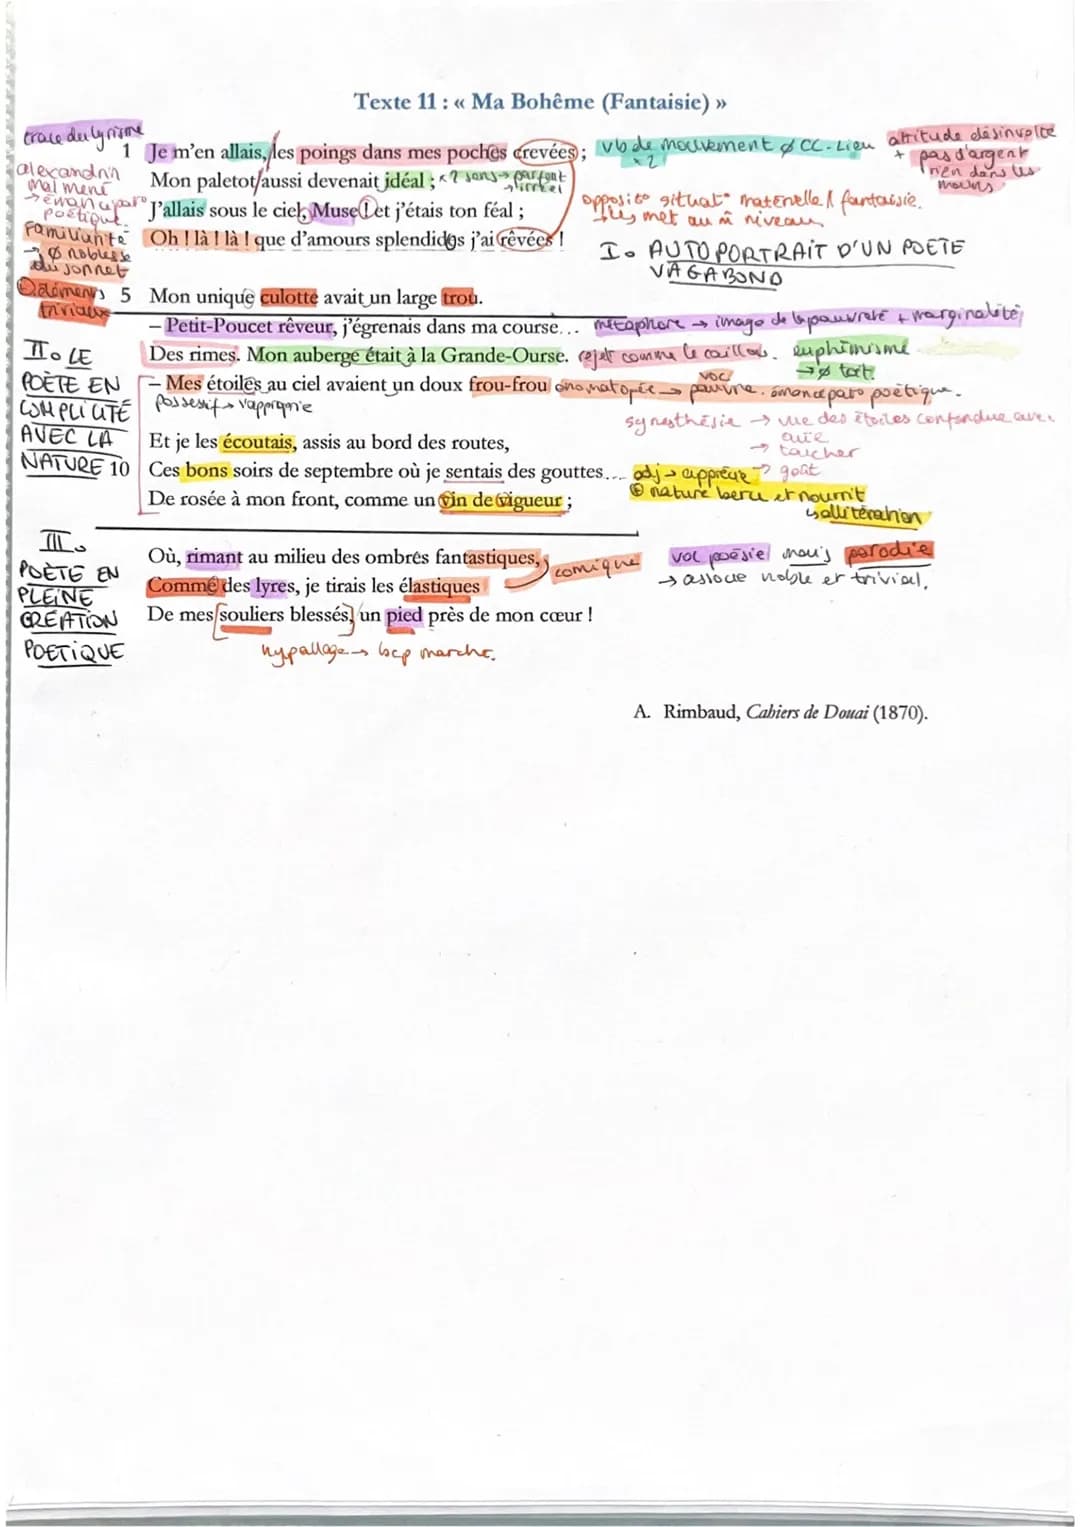 Texte 11 : « Ma Bohême (Fantaisie) »
trace du lyrisme
1 Je m'en allais, les poings dans mes poches crevées ;
vb de mouvement ø CC. Lieu
x 2
attitude désinvolte
+ pas d'argent
rien dans les
mains
alexandrin
mal mené
→ émancipat°
poétique
Mon paletot aussi devenait idéal ;
2 sens → parfait
→ irréel
J'allais sous le ciel, Muse ! et j'étais ton féal ;
opposit° situat° matérielle / fantaisie.
les met au m̂ niveau
Familiarité
→ ø noblesse
du sonnet
Oh ! là ! là ! que d'amours splendides j'ai rêvées !
I. AUTOPORTRAIT D'UN POETE
VAGABOND
éléments
triviaux
5 Mon unique culotte avait un large trou.
– Petit-Poucet rêveur, j'égrenais dans ma course…
métaphore → image de la pauvreté + marginalité
II. LE
POÈTE EN
COMPLICITÉ
AVEC LA
NATURE
Des rimes. Mon auberge était à la Grande-Ourse.
rejet comme le caillou.
euphémisme
→ ø toit.
– Mes étoiles au ciel avaient un doux frou-frou
onomatopée → voc pauvre. émancipat° poétique.
possessif → s'approprie
synesthésie → vue des étoiles confondue avec
ouïe
→ toucher
→ goût
Et je les écoutais, assis au bord des routes,
10 Ces bons soirs de septembre où je sentais des gouttes…
adj → apprécie
⊕ nature berce et nourrit
De rosée à mon front, comme un vin de vigueur ;
↳ allitération
III.
POÈTE EN
PLEINE
CREATION
POETIQUE
Où, rimant au milieu des ombres fantastiques,
comique
voc poésie mais parodie
Comme des lyres, je tirais les élastiques
→ associe noble et trivial.
De mes souliers blessés, un pied près de mon cœur !
hypallage → bcp marché.
A. Rimbaud, Cahiers de Douai (1870).